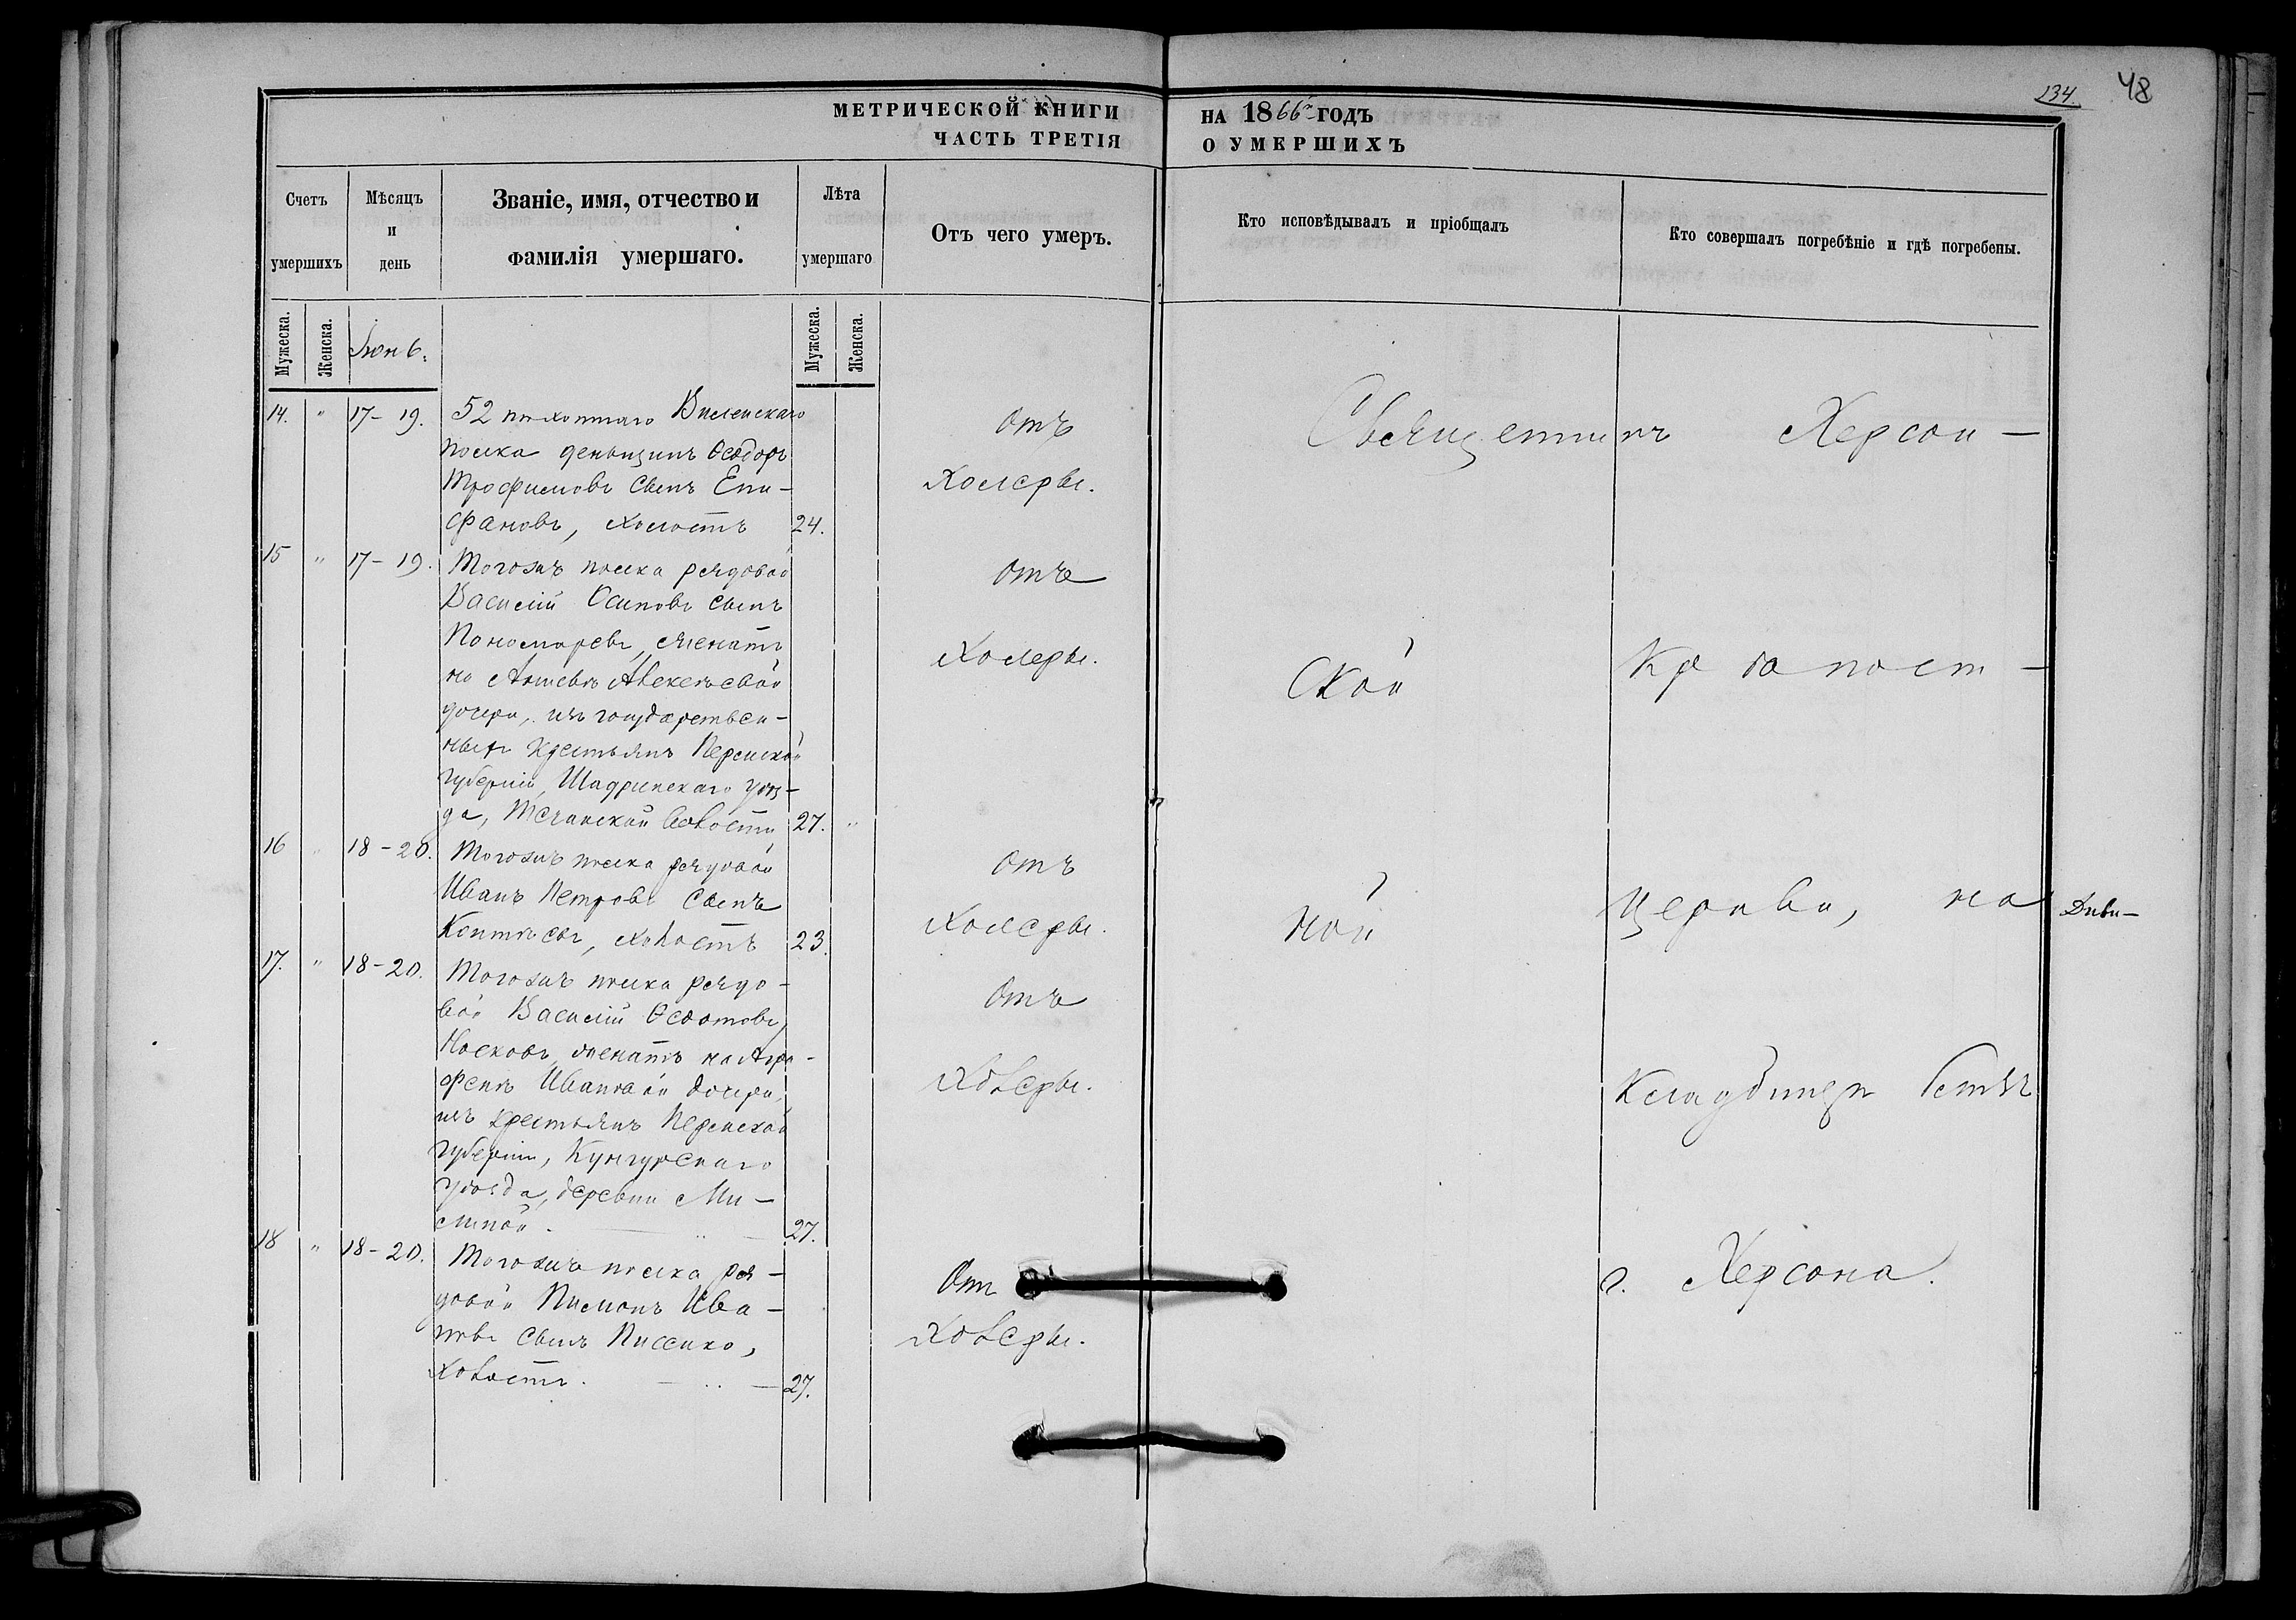 134. 48
МЕТРИЧЕСКОЙ КНИГИ НА 1866 ГОДЪ
ЧАСТЬ ТРЕТІЯ О УМЕРШИХЪ
Счетъ умершихъ
Мѣсяцъ и день
Званіе, имя, отчество и фамилія умершаго.
Лѣта умершаго
Отъ чего умеръ.
Кто исповѣдывалъ и пріобщалъ
Кто совершалъ погребѣніе и гдѣ погребены.
Мужеска. Женска. Іюнь. Мужеска. Женска.
14. " 17-19. 52 пѣхотнаго Виленскаго
полка деньщикъ Ѳеодоръ
Трофимовъ сынъ Епи-
фановъ, холостъ 24.
отъ
холеры.
15 " 17-19. Тогожъ полка рядовой
Василій Осиповъ сынъ
Пономаревъ, женатъ
на
дочери, изъ государствен-
ныхъ крестьянъ Пермской
губерніи, Шадринскаго уѣз-
да, Теченской волости 27. "
отъ
холеры.
16 " 18-20. Тогожъ полка рядовой
Иванъ Петровъ сынъ
холостъ 23.
отъ
холеры.
17. " 18-20. Тогожъ полка рядо-
вой Василій Ѳедотовъ
Носковъ, женатъ на Агра-
фенѣ Ивановой дочери,
изъ крестьянъ Пермской
губерніи, Кунгурскаго
уѣзда, деревни
27.
отъ
холеры.
18 " 18-20. Тогожъ полка ря-
довой Пименъ Ива-
новъ сынъ
холостъ. 27.
отъ
холеры.
Священникъ Херсон-
ской Крѣпост-
ной церкви, на
кладбищѣ
г. Херсона.